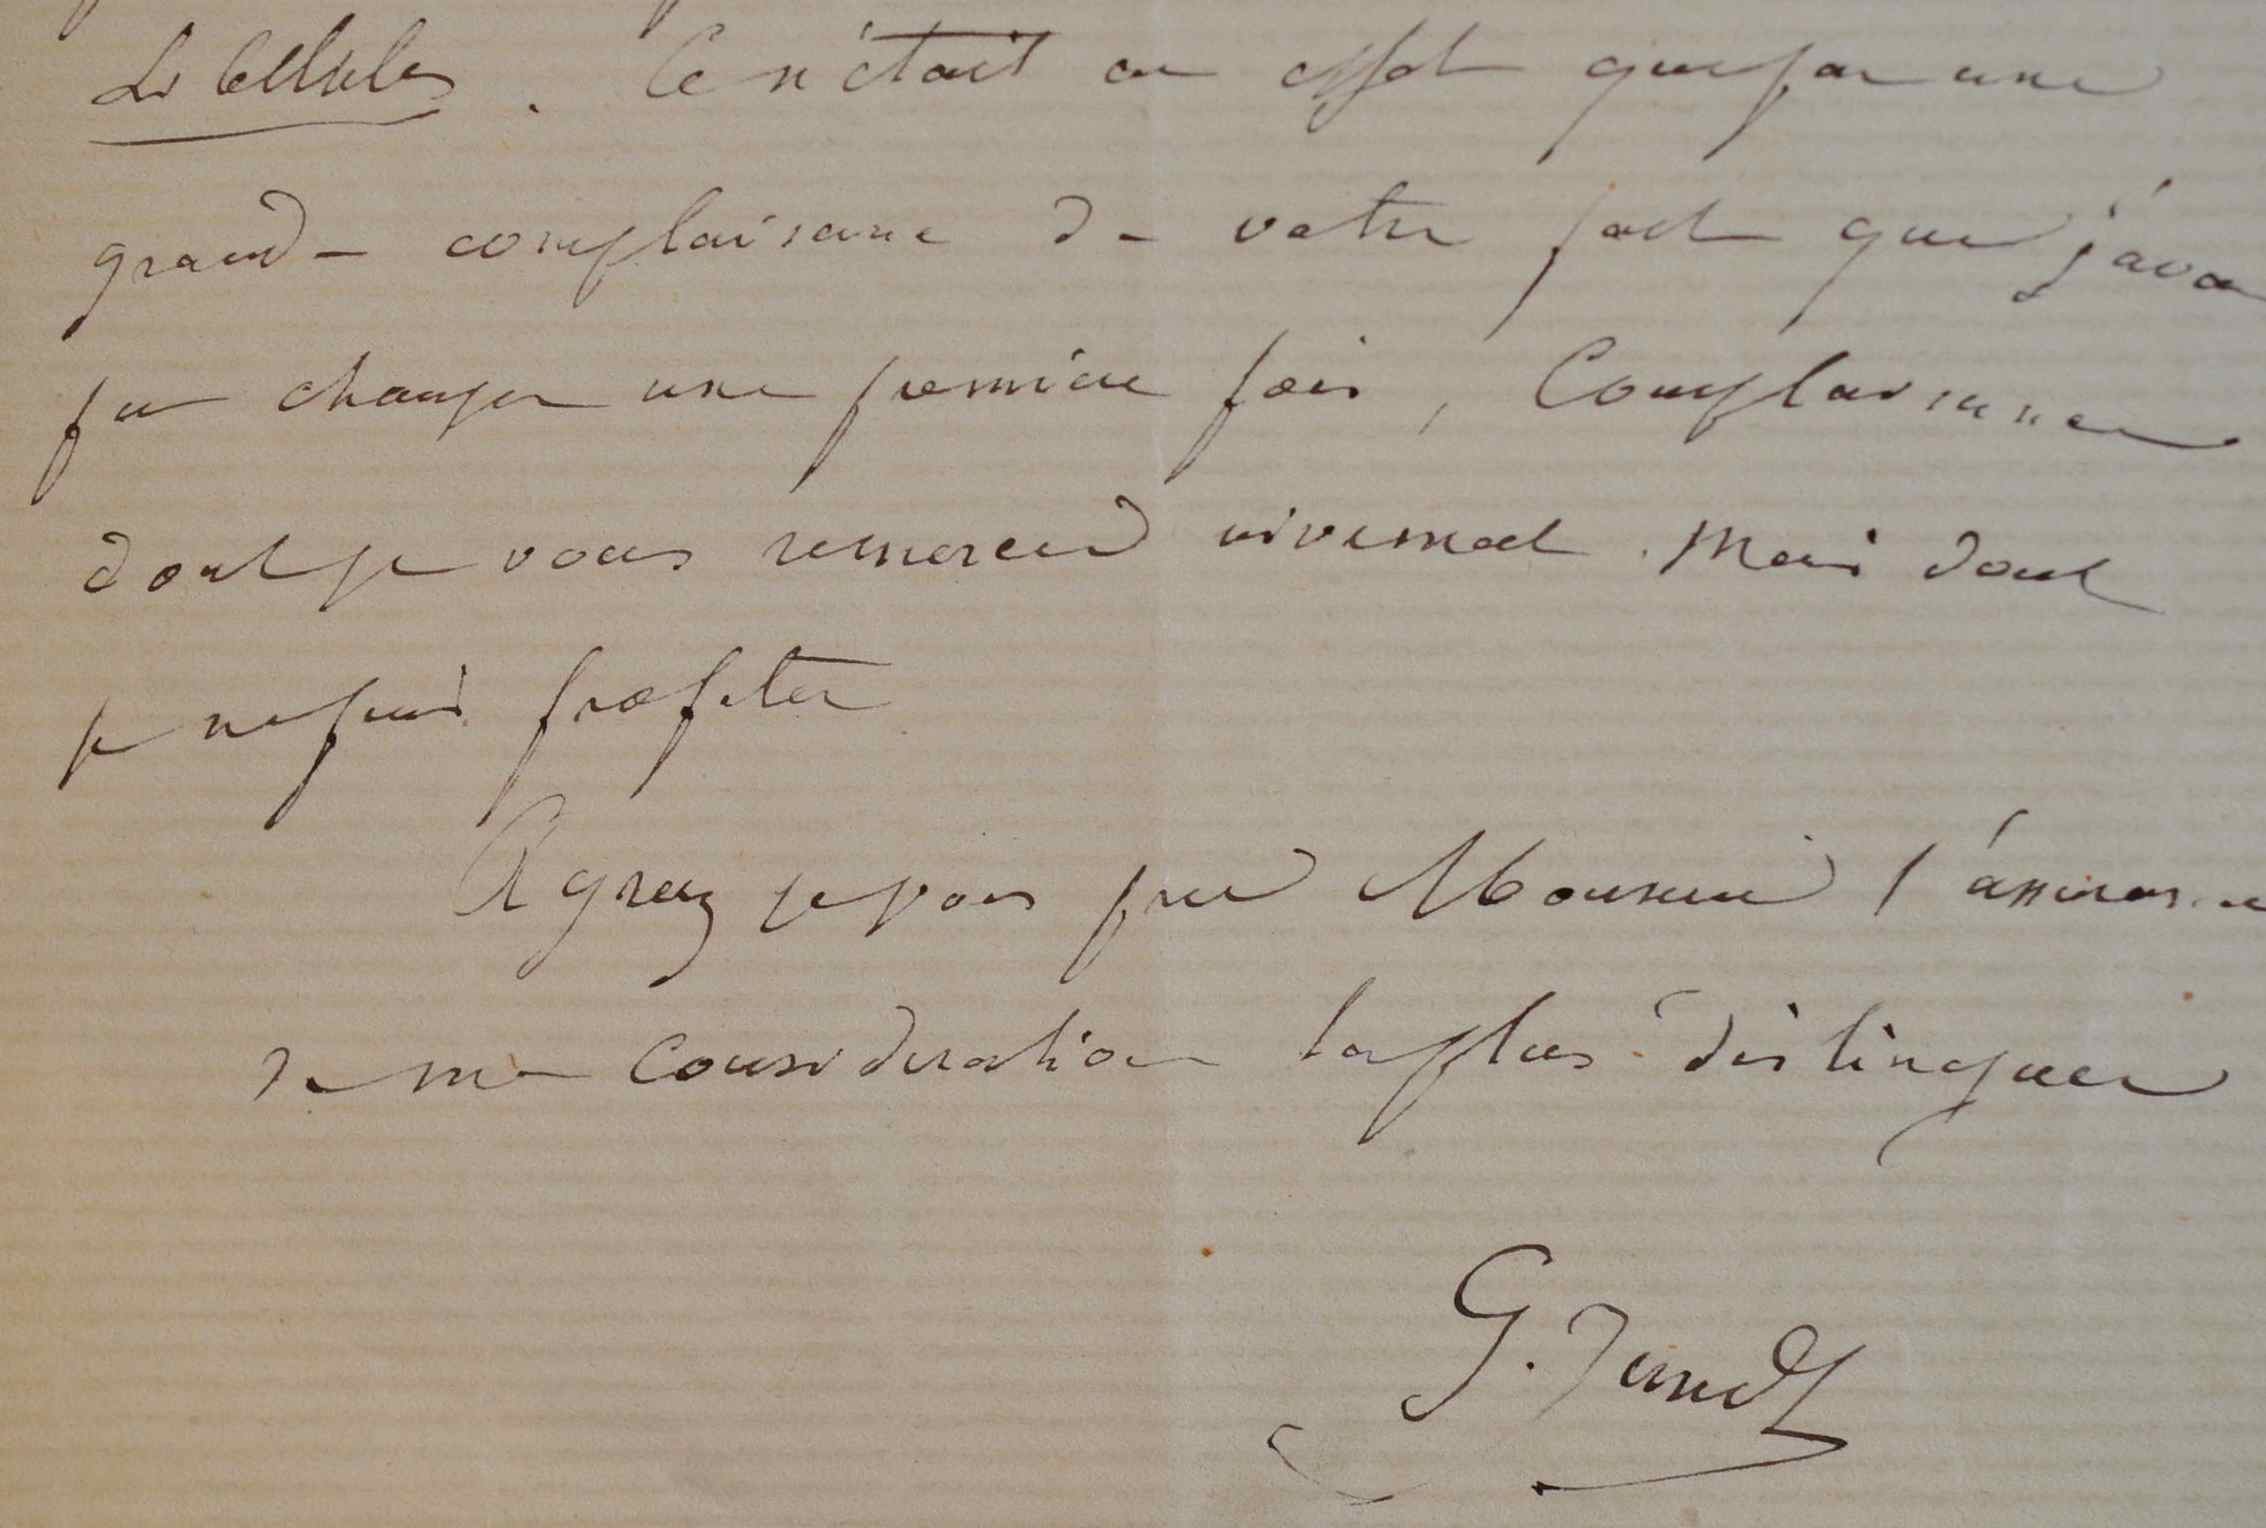 Ce n'était en effet que par une
grande complaisance de votre part que j'avai
pu changer une première fois, Complaisance
dont je vous remercie vivement. Mais dont
je ne puis profiter
Agréez je vous prie Monsieur l'assurance
de ma Considération la plus distinguée
G.